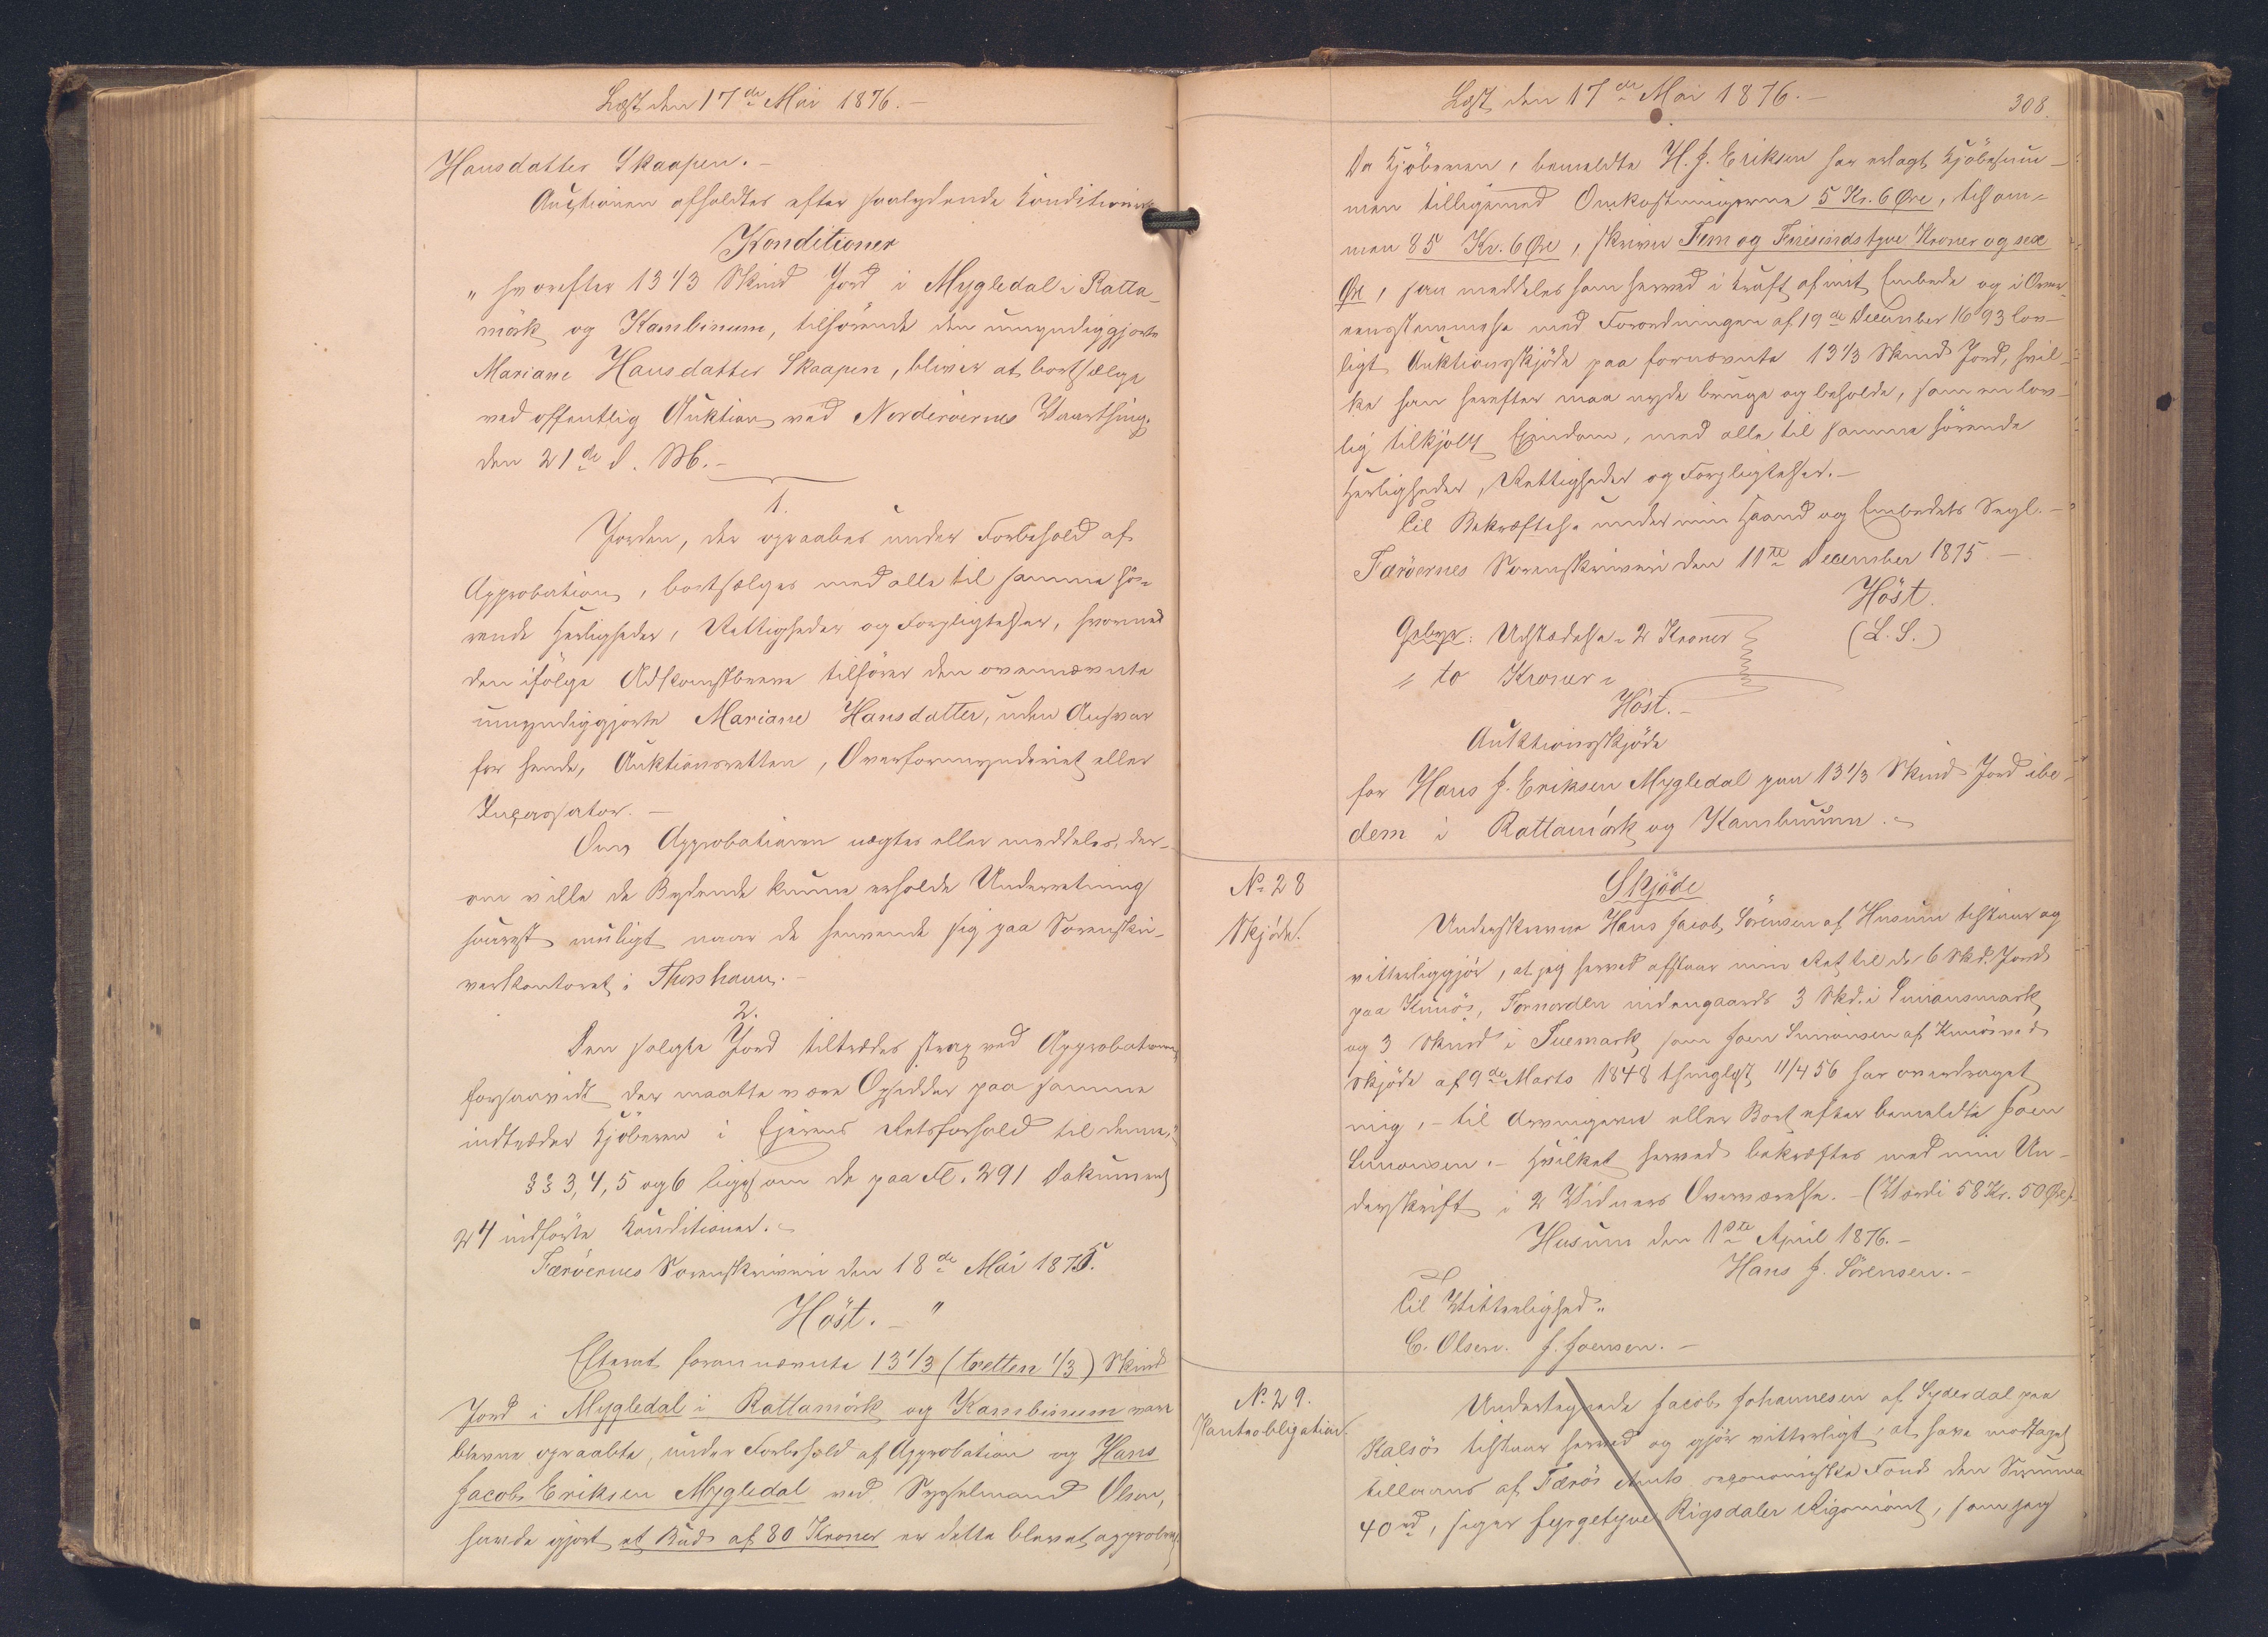 Læst den 17de Mai 1876.-
Hansdatter Skaapen.-
Auctionen afholdtes efter saalydende Conditioner
Konditioner
„ hvorefter 13 1/3 Skind Jord i Mygledal i Ratta-
mörk og Kambinum, tilhörende den umyndiggjorte
Mariane Hansdatter Skaapen, bliver at bortsælge
ved offentlig Auktion ved Norderöernes Vaarthing.
den 21de d. M.-
1.
Jorden, der opraabes under Forbehold af
Approbation, bortsælges med alle til samme hö-
rende Herligheder, Rettigheder og Forpligtelser, hvormed
den ifölge Adkomstbrevene tilhörer den ovennævnte
umyndiggjorte Mariane Hansdatter, uden Ansvar
for hende, Auktionsretten, Overformynderiet eller
Incassator.-
Om Approbationen nægtes eller meddeles, der-
om ville de Bydende kunne erholde Underretning
snarest muligt naar de henvende sig paa Sorenskri-
verkontoret i Thorshavn.-
2.
Den solgte Jord tiltrædes strax ved Approbationen
forsaavidt der maatte være Opsidder paa samme
indtræder Kjöberen i Ejerens Retsforhold til denne.
§§ 3, 4, 5 og 6 ligesom de paa Fl. 291 Dokument
24 indförte Konditioner.-
Færöernes Sorenskriveri den 18de Mai 1875.
Höst.- "
Efterat forannævnte 13 1/3 (tretten 1/3) Skind
Jord i Mygledal i Rattamörk og Kambinum vare
blevne opraabte, under Forbehold af Approbation og Hans
Jacob Eriksen Mygledal ved Sysselmand Olsen,
havde gjort et Bud af 80 Kroner er dette blevet approberet.
Læst den 17de Mai 1876.-
308.
Da Kjöberen, bemeldte H. J. Eriksen har erlagt Kjöbesum-
men tilligemed Omkostningerne 5 Kr. 6 Øre, tilsam-
men 85 Kr. 6 Øre, skriver Fem og Firesindstyve Kroner og sex
Øre, saa meddeles ham herved i Kraft af mit Embede og i Over-
eensstemmelse med Forordningen af 19de December 1693 lov-
ligt Auktionsskjöde paa fornævnte 13 1/3 Skind Jord, hvil-
ke han herefter maa nyde bruge og beholde, som en lov-
lig tilkjöbt Ejendom, med alle til samme hörende
Herligheder, Rettigheder og Forpligtelser.-
Til Bekræftelse under min Haand og Embedets Segl.-
Færöernes Sorenskriveri den 11te December 1875.-
Höst.
Gebyr: Udstedelse 2 Kroner
(L. S.)
„ to Kroner „
Höst.-
Auktionsskjöde
for Hans J. Eriksen Mygledal paa 13 1/3 Skind Jord ibi-
dem i Rattamörk og Kambinum.-
No. 28
Skjöde.
Skjöde
Underskrevne Hans Jacob Sörensen af Husum tilstaar og
vitterliggjör, at jeg herved afstaar min Ret til de 6 Skd. Jord
paa Kunö, Fornorden indengaards 3 Skd. i Simansmark
og 3 Skind i Tuemark, som Joen Simonsen af Kunö ved
Skjöde af 9de Marts 1848 thinglyst 11/4 56 har overdraget
mig,- til Arvingerne eller Boet efter bemeldte Joen
Simonsen.- Hvilket herved bekræftes med min Un-
derskrift i 2 Vidners Overværelse.- (Værdi 58 Kr. 50 Øre)
Husum den 1ste April 1876.-
Hans J. Sörensen.-
Til Vitterlighed.
C. Olsen. J. Joensen.-
No. 29.
Panteobligation.
Undertegnede Jacob Johannesen af Syderdal paa
Kalsö tilstaar herved og gjör vitterligt, at have modtaget
tillaans af Færö Amts oeconomiske Fond den Summa
40 rd, siger fyrgetyve Rigsdaler Rigsmönt, som jeg